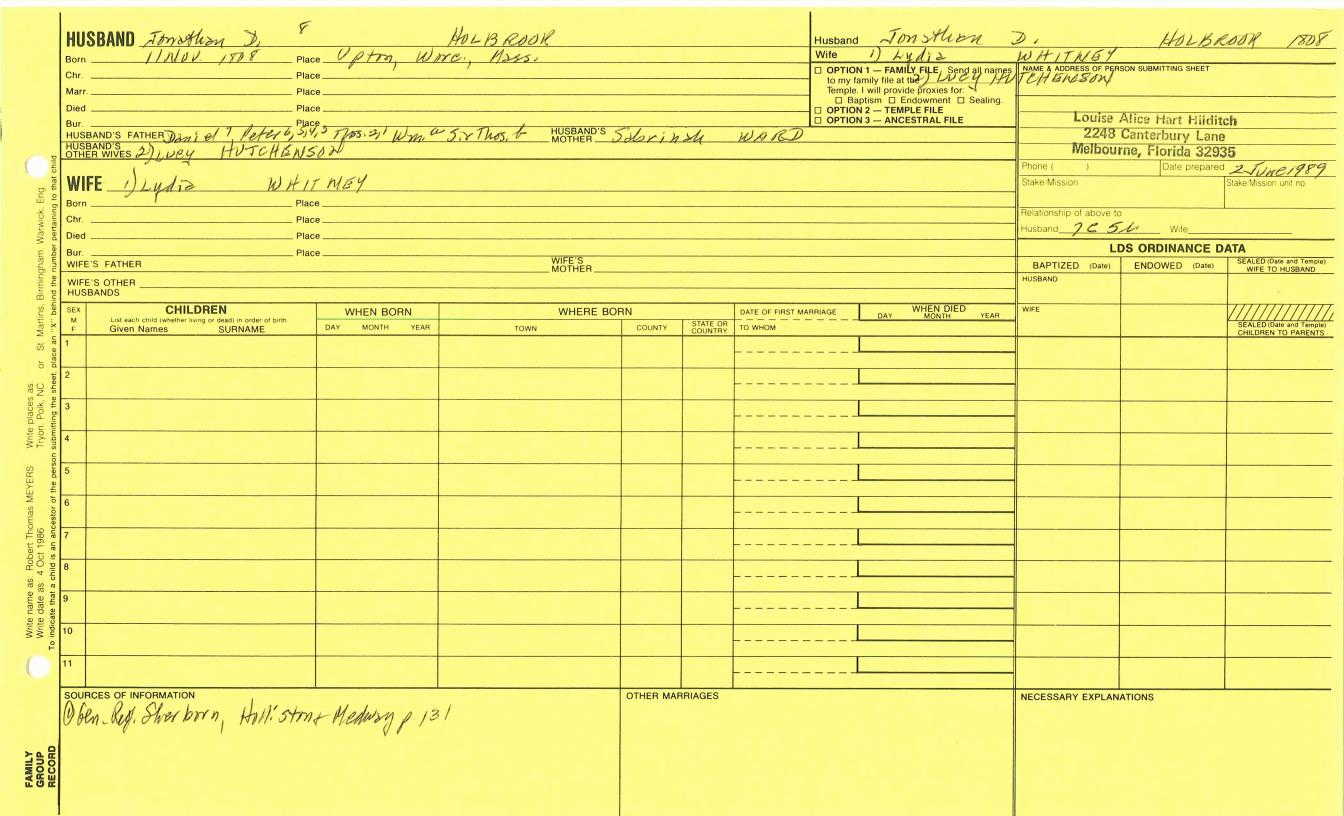 HUSBAND Jonathan D. 8 HOLBROOK
Born 11 Nov 1808 Place Upton, Worc, Mass.
Chr. Place
Marr. Place
Died Place
Bur. Place
HUSBAND'S FATHER Daniel 7 Peter 6, 5, 4, 3 Thos. 2, 1 Wm a Sir Thos. b HUSBAND'S MOTHER Sabrinah WARD
HUSBAND'S OTHER WIVES 2) Lucy HUTCHENSON
WIFE 1) Lydia WHITNEY
Born Place
Chr. Place
Died Place
Bur. Place
WIFE'S FATHER WIFE'S MOTHER
WIFE'S OTHER HUSBANDS
Husband Jonathan D. HOLBROOK 1808
Wife 1) Lydia WHITNEY
2) LUCY HUTCHENSON
OPTION 1 — FAMILY FILE Send all names
to my family file at the
Temple. I will provide proxies for:
Baptism Endowment Sealing.
OPTION 2 — TEMPLE FILE
OPTION 3 — ANCESTRAL FILE
NAME & ADDRESS OF PERSON SUBMITTING SHEET
Louise Alice Hart Hilditch
2248 Canterbury Lane
Melbourne, Florida 32935
Phone ( ) Date prepared 2 June 1989
Stake/Mission Stake/Mission unit no.
Relationship of above to
Husband 7C 5G Wife
LDS ORDINANCE DATA
BAPTIZED (Date) ENDOWED (Date) SEALED (Date and Temple) WIFE TO HUSBAND
HUSBAND
WIFE
SEALED (Date and Temple) CHILDREN TO PARENTS
SEX M F
CHILDREN
List each child (whether living or dead) in order of birth
Given Names SURNAME
WHEN BORN
DAY MONTH YEAR
WHERE BORN
TOWN COUNTY STATE OR COUNTRY
DATE OF FIRST MARRIAGE
TO WHOM
WHEN DIED
DAY MONTH YEAR
1
2
3
4
5
6
7
8
9
10
11
SOURCES OF INFORMATION
① Gen. Reg. Sherborn, Holliston & Medway p 131
OTHER MARRIAGES
NECESSARY EXPLANATIONS
Write name as Robert Thomas MEYERS Write places as Tryon, Polk, NC or St Martins, Birmingham Warwick, Eng
Write date as 4 Oct 1986
To indicate that a child is an ancestor of the person submitting the sheet, place an "X" behind the number pertaining to that child
FAMILY
GROUP
RECORD